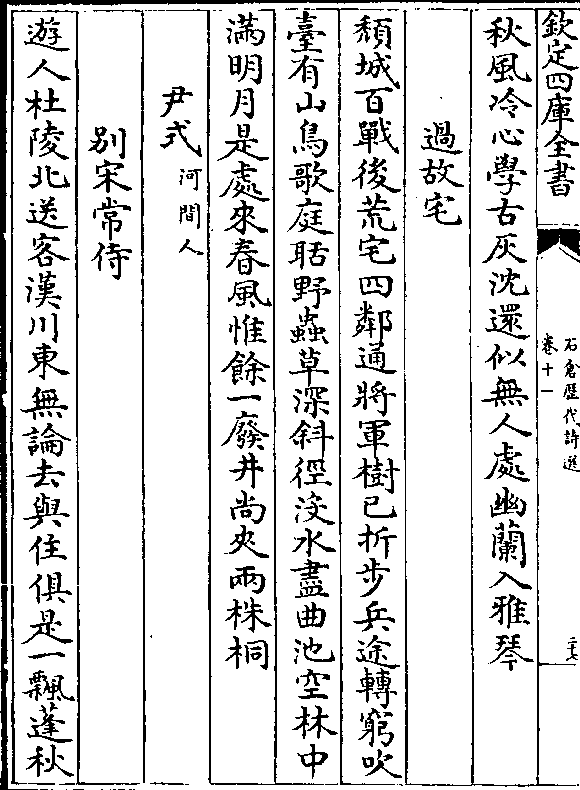 欽定四庫全書
石倉歷代詩選
卷十一
二十七
秋風冷心學古灰沈還似無人處幽蘭入雅琴
過故宅
頹城百戰後荒宅四鄰通將軍樹已折步兵途轉窮吹
臺有山鳥歌庭聒野蟲草深斜徑沒水盡曲池空林中
滿明月是處來春風惟餘一廢井尚夾兩株桐
尹式河間人
別宋常侍
遊人杜陵北送客漢川東無論去與住俱是一飄蓬秋